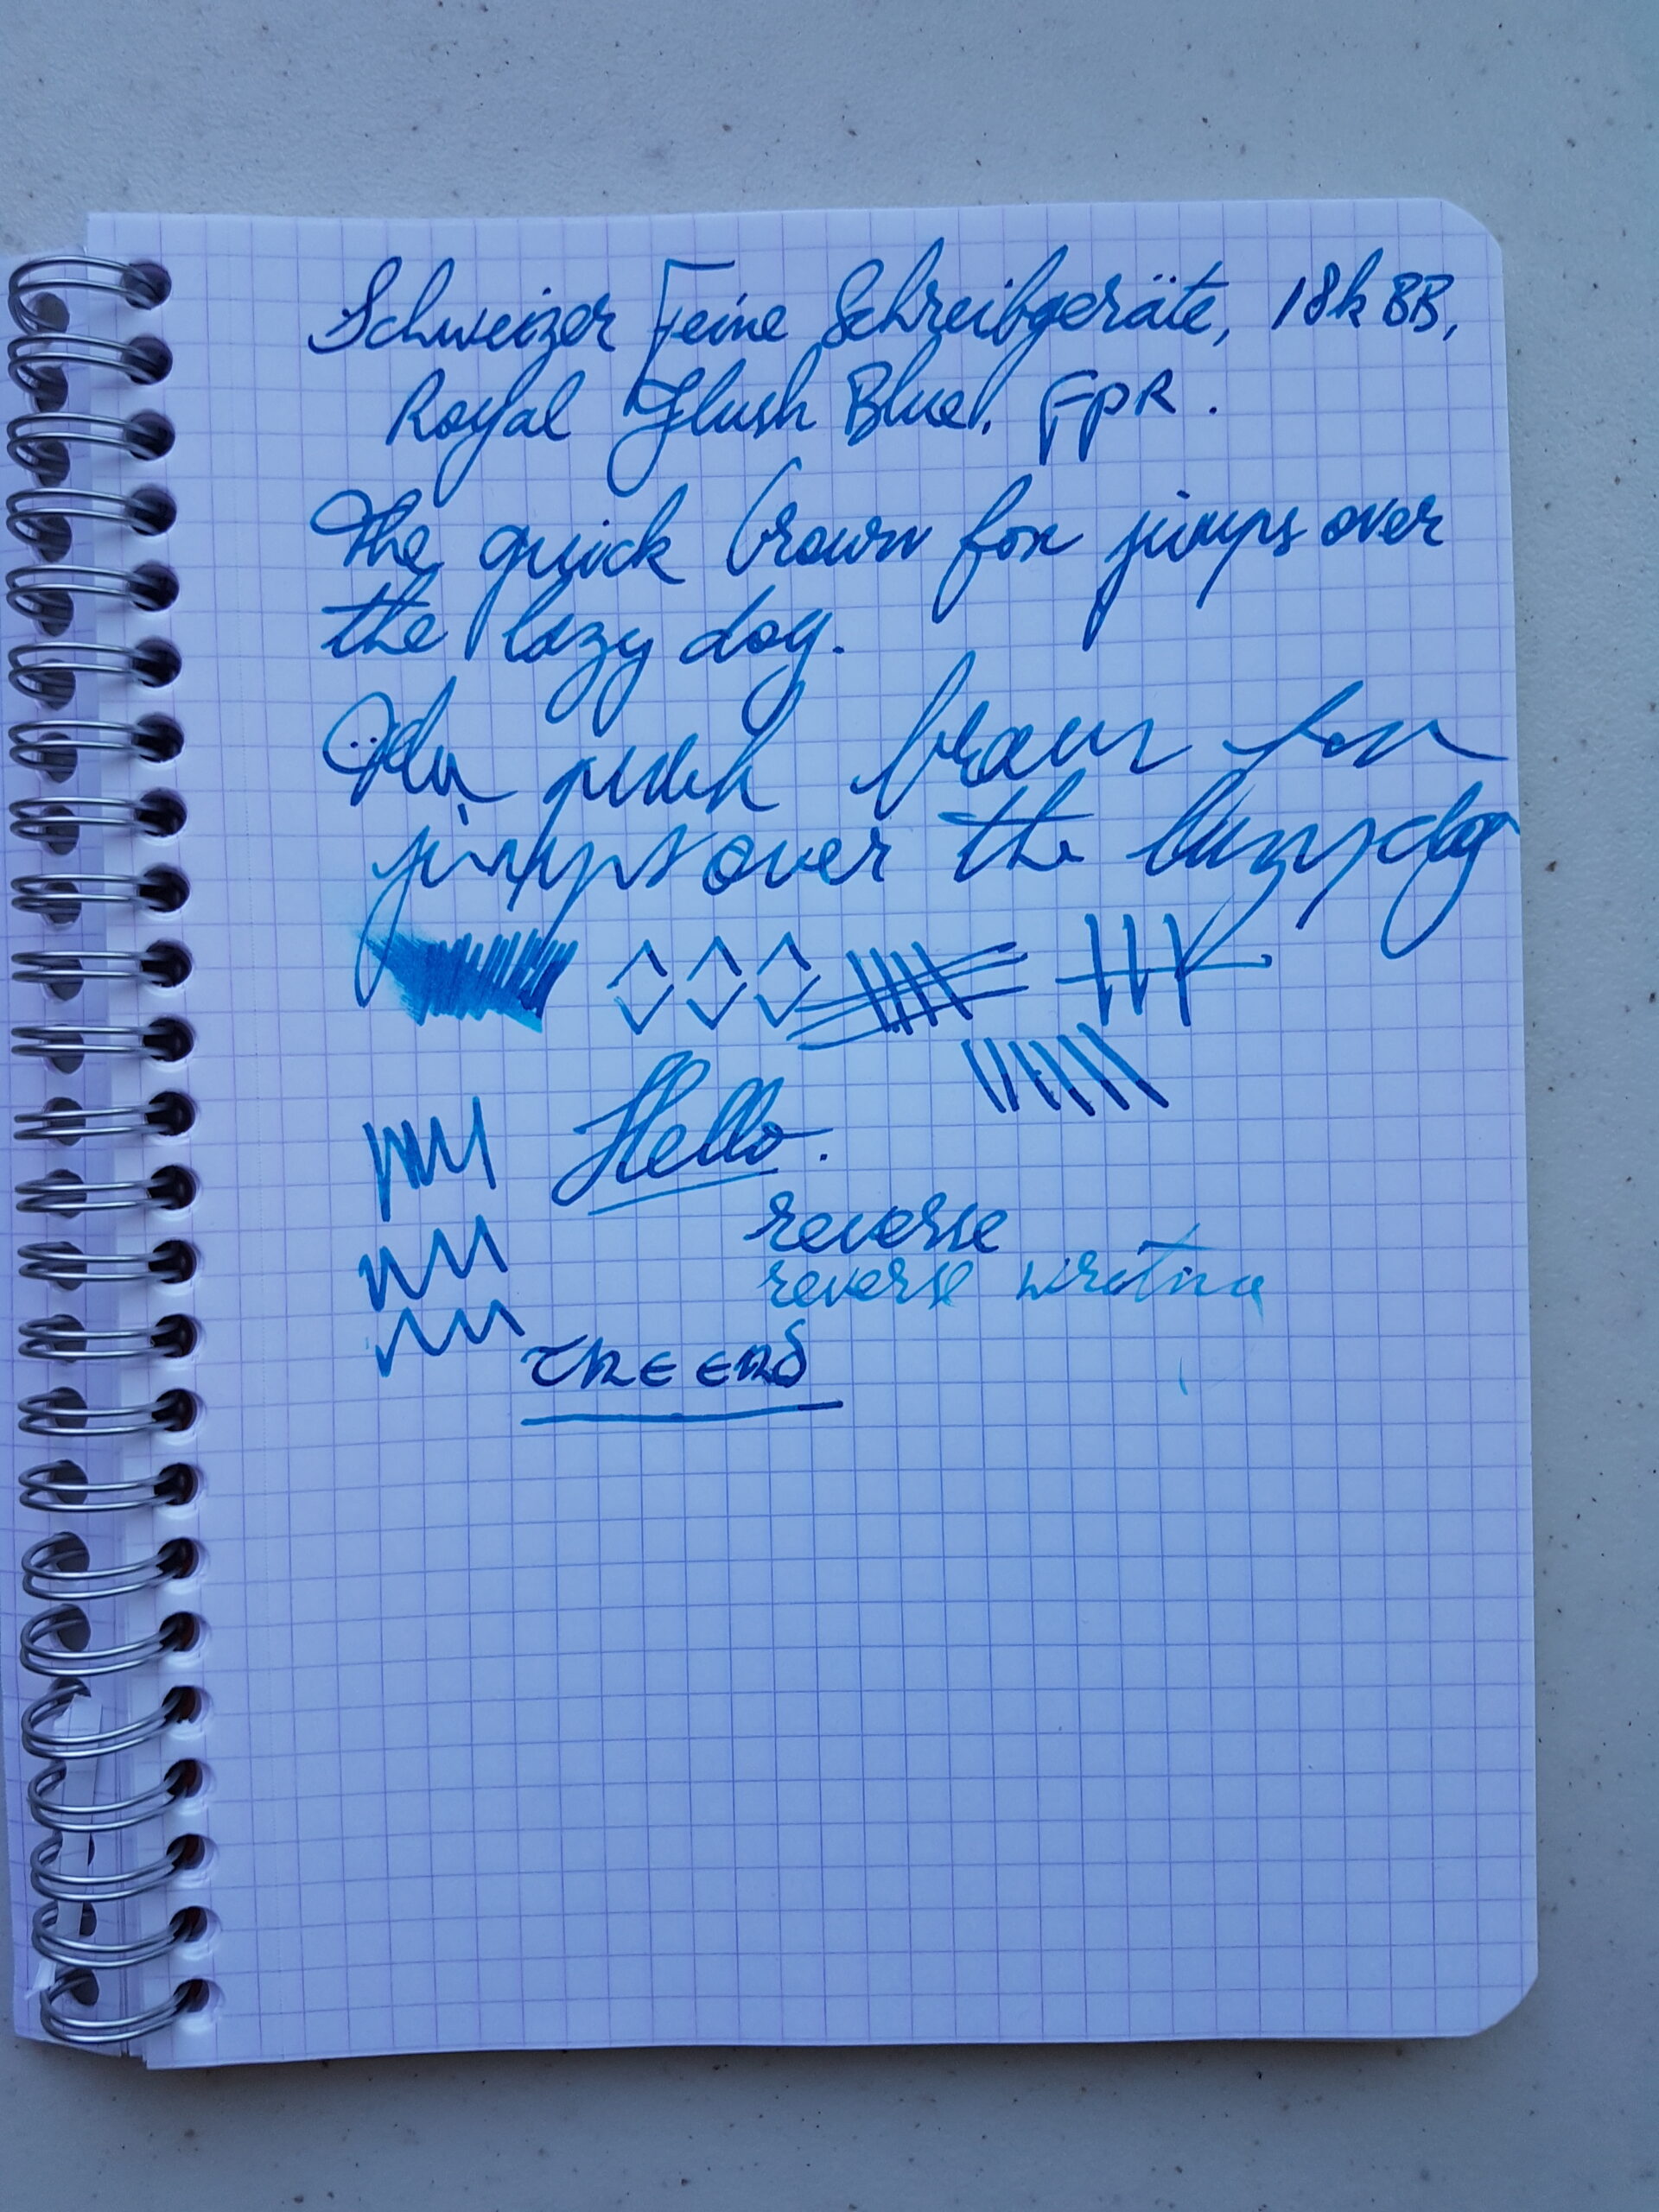 Schweizer Feine Schreibgeräte, 18k BB,
Royal Flush Blue, FPR.
The quick brown fox jumps over
the lazy dog.
The quick brown fox
jumps over the lazy dog
Hello.
reverse
reverse writing
THE END